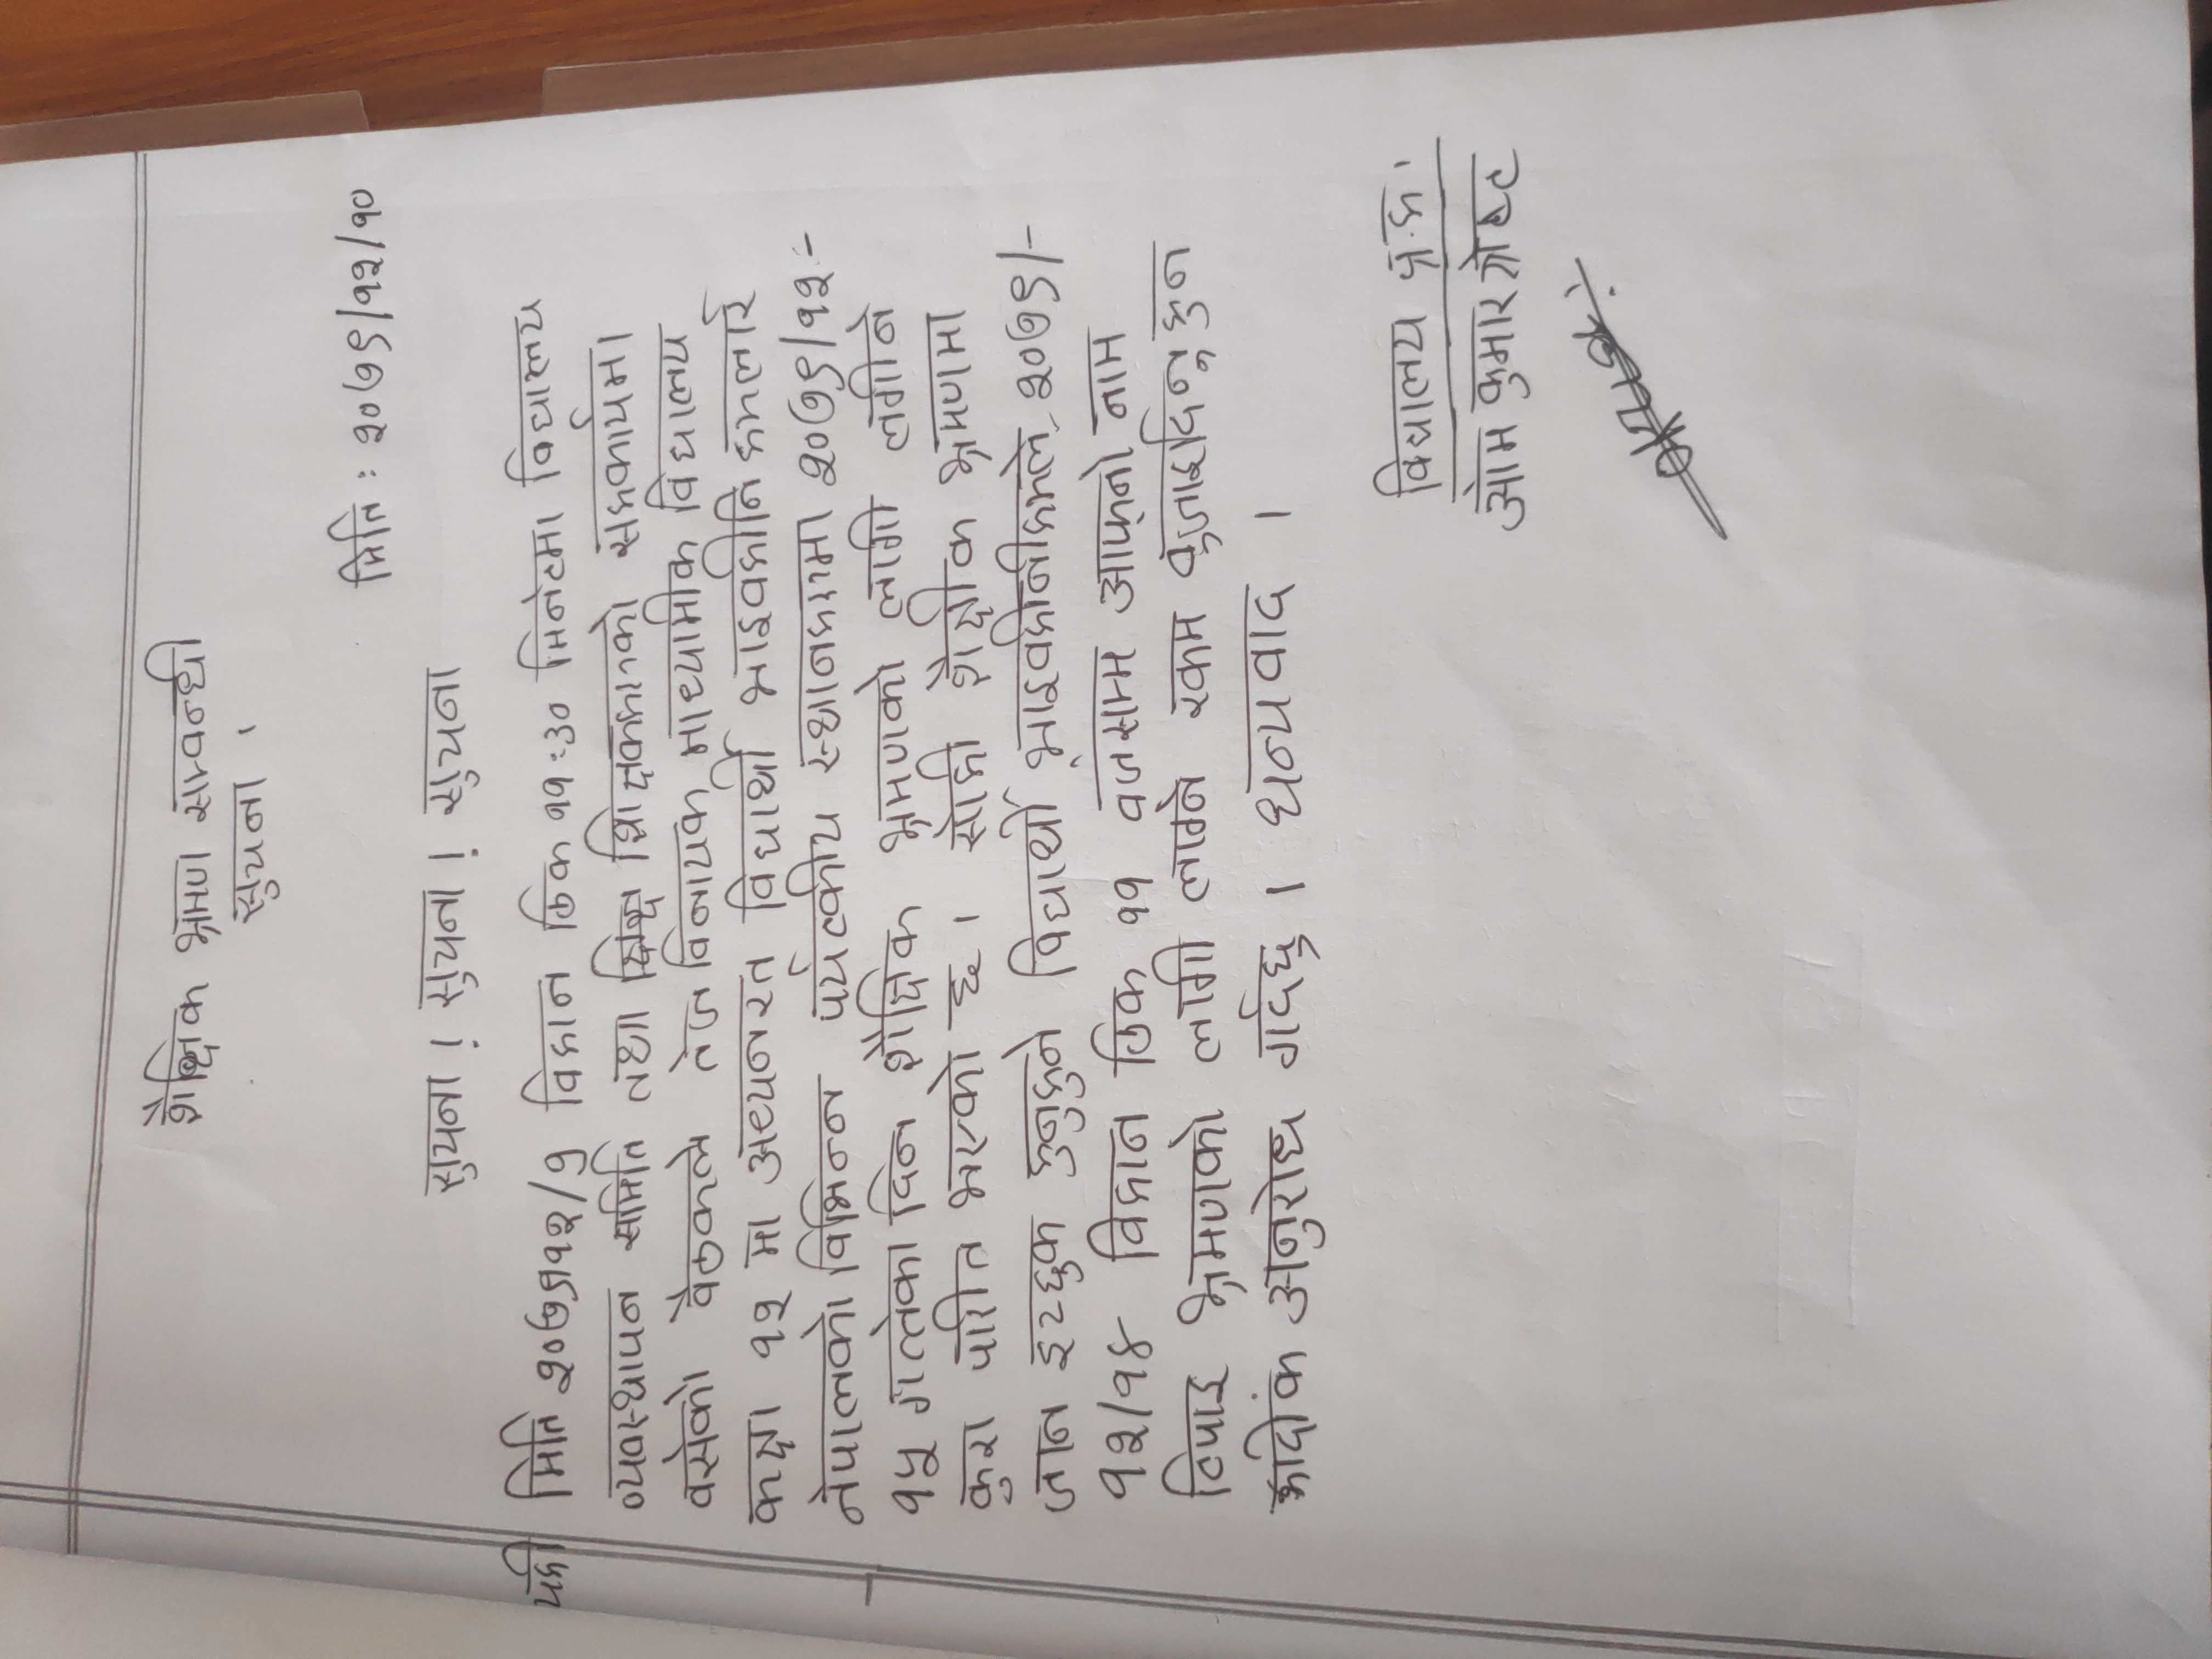 शैक्षिक भ्रमण सम्वन्धी
सुचना ।
मिति : २०७९/१२/१०
सुचना ! सुचना ! सुचना
यही मिति २०७९१२/९ विहान ठिक ११:३० मिनेटमा विद्यालय
व्यवस्थापन समिति तथा शिक्षकहरुको सहकार्यमा
वसेको वैठकले तेज विनायक माध्यामीक विद्यालय
कक्षा १२ मा अध्यनरत विद्यार्थी भाइवहीनि हरुलाई
नेपालको विभिन्न पर्यटकीय स्थानहरुमा २०७९/१२-
१५ गत्तेका दिन शैक्षिक भ्रमणको लागी लगीने
कुरा पारीत भएको छ । सोही शैक्षीक भ्रमणमा
जान इच्छुक हुनुहुने विद्यार्थी भाइवहीनीहरुले २०७९/-
१२/१४ विहान ठिक ११ वजेसम्म आफ्नो नाम
टिपाइ भ्रमणको लागी लाग्ने रकम वुजाइदिनु हुन
हार्दीक अनुरोध गर्दछु । धन्यवाद ।
विद्यालय प्र.अ.
ओम कुमार श्रेष्ट